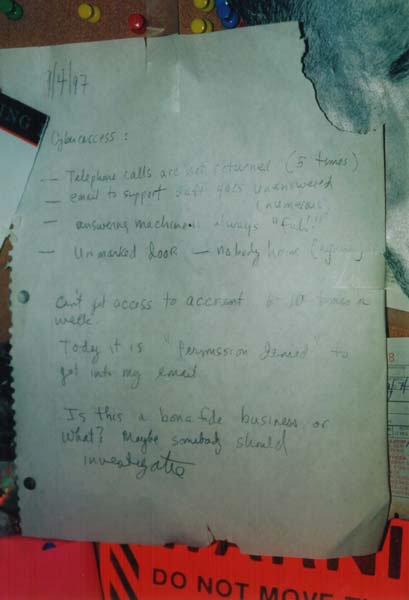 9/4/97
Cyberaccess:
— Telephone calls are not returned (5 times)
— email to support goes unanswered
(numerous)
— answering machine always "full"
— Unmarked door — nobody home
Can't get access to account 6-10 times a
week.
Today it is "Permission Denied" to
get into my email
Is this a bona fide business or
what? Maybe somebody should
investigate
DO NOT MOVE